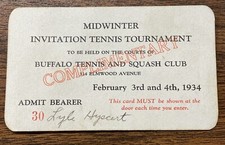 MIDWINTER
INVITATION TENNIS TOURNAMENT
TO BE HELD ON THE COURTS OF
BUFFALO TENNIS AND SQUASH CLUB
COMPLIMENTARY
314 ELMWOOD AVENUE
February 3rd and 4th, 1934
ADMIT BEARER
This card MUST be shown at the
door each time you enter.
30 Lyle Hyscert